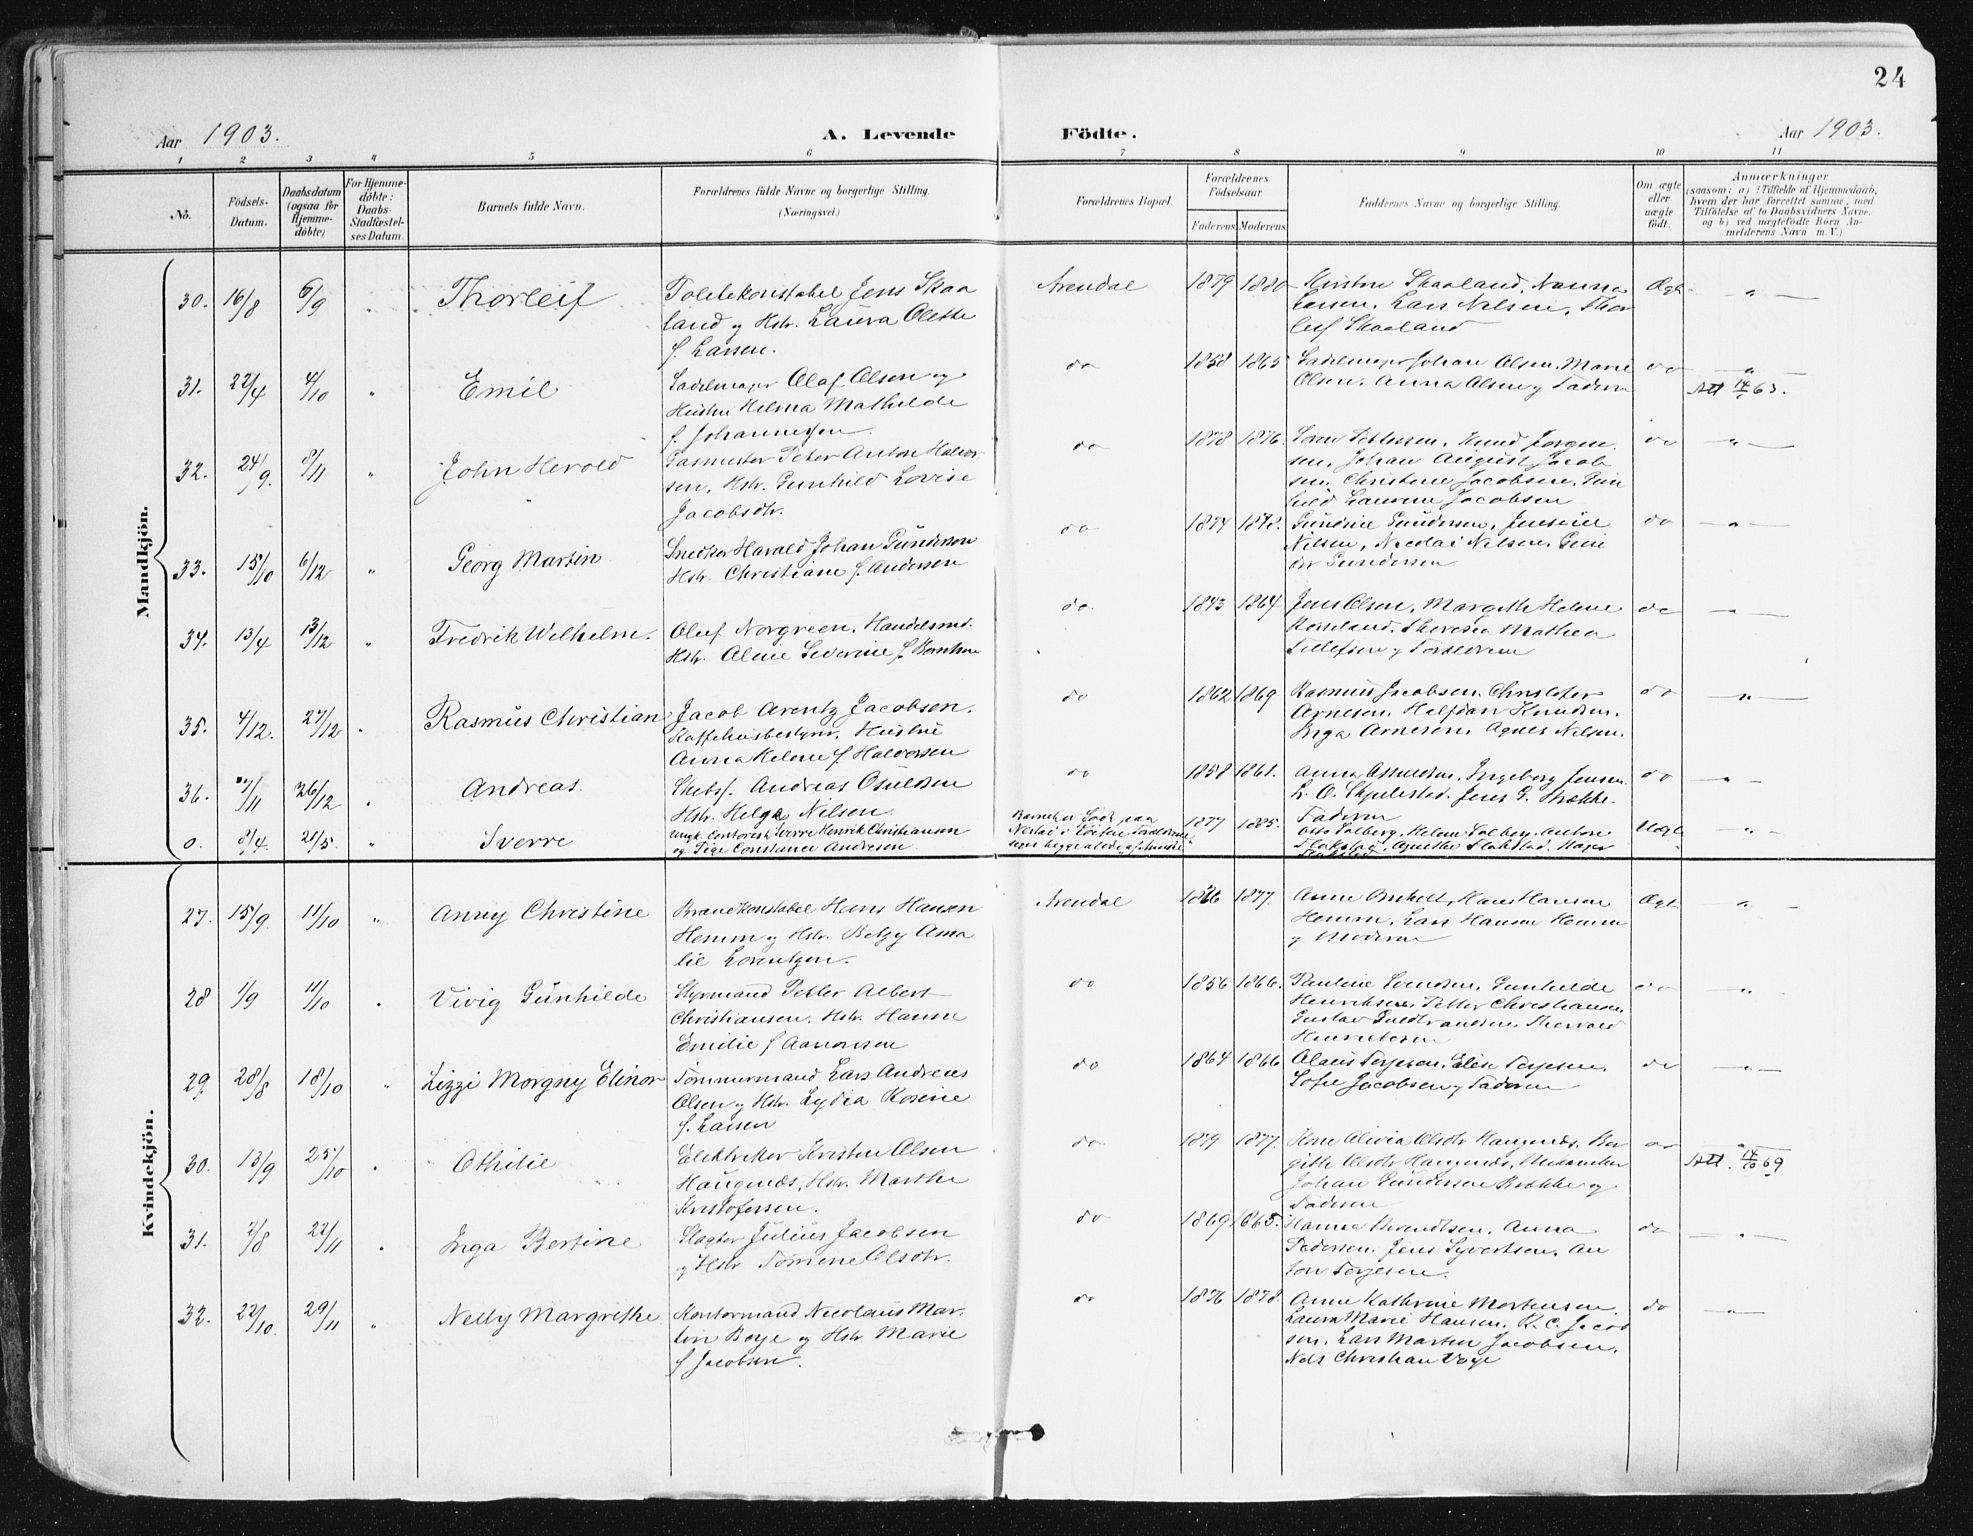 24
Aar 1903.
A. Levende Födte.
Aar 1903.
1 2 3 4 5 6 7 8 9 10 11
No.
Födsels-
Datum.
Daabsdatum
(ogsaa for
Hjemme-
döbte)
For Hjemme-
döbte:
Daabs-
Stadfæstel-
ses Datum.
Barnets fulde Navn.
Forældrenes fulde Navne og borgerlige Stilling.
(Næringsvei.)
Forældrenes Bopæl.
Forældrenes
Födselsaar
Faderens Moderens
Faddernes Navne og borgerlige Stilling.
Om ægte
eller
uægte
födt.
Anmærkninger
(saasom: a) i Tilfælde af Hjemmedaab,
hvem der har forrettet samme, med
Tilföielse af to Daabsvidners Navne,
og b) ved uægtefödte Börn An-
melderens Navn m. V.)
Mandkjön.
30. 16/8 6/9 " Thorleif
Toldekonstabel Jens Skaa
land og Hstr. Laura Olette
f. Larsen.
Arendal 1879 1880
Kirstine Skaaland, Nanna
Larsen, Lars Nilsen, Thor
leif Skaaland
Ægte
31. 22/4 4/10 " Emil
Sadelmager Olaf Olsen og
Hustru Helma Mathilde
f. Johannessen
do 1858 1865
Sadelmager Johan Olsen, Marie
Olsen, Anna Olsen og Faderen
do
Att 14/1 63.
32. 24/9. 8/11 " John Herold
Gasmester Peter Anton Halvor
sen, Hstr. Gunhild Lovise
Jacobsdtr.
do 1878 1876.
Soren Pettersen, Knud Jorgen
sen, Johan August Jacob
sen, Christine Jacobsen, Gun
hild Laurine Jacobsen
do
33. 15/10 6/12 " Georg Martin
Snedker Harald Johan Gunderson
Hstr. Christiane f. Andersen
do 1874 1878.
Gundine Gundersen,
Nilsen, Nicolai Nilsen,
Gundersen
do
34. 13/4 13/12 " Fredrik Wilhelm.
Oluf Norgreen, Handelsmd.
Hstr. Aline Severine f.
do. 1843 1864
Jens Olsen, Margith Helene
Theresia Mathea
Tellefsen og Forældrene
do
35. 4/12. 27/12 " Rasmus Christian
Jacob Arentz Jacobsen.
Kaffehusbestyrer, Hustru
Anna Helene f. Halvorsen
do 1862 1869
Rasmus Jacobsen, Christofer
Arnesen, Halfdan Knudsen,
Inga Arnesen, Agnes Nilsen.
do
36. 7/11 26/12 " Andreas.
Skibsf. Andreas Osuldsen
Hstr. Helga Nilsen.
do 1858 1861.
Anna Osuldsen, Ingeborg Jensen
L. O. Skjulestad, Jens G. Brække.
Faderen
do
0. 8/4. 21/5. " Sverre
ungk. Contorist Sverre Henrik Christiansen
og Pige Constance Andresen.
1877 1885.
Otto Solberg, Helene Solberg, Anton
Flakstad, Agnethe Flakstad,
Uægte
Kvindekjön.
27. 15/9. 11/10 " Anny Christine
Brandkonstabel Hans Hansen
Hemm og Hstr. Betzy Ama
lie Lorentzen.
Arendal 1866 1877.
Anne Hans Hansen
Hemm, Lars Hansen Hemm
og Moderen
Ægte
28 1/9 11/10 " Vivig Gunhilde
Styrmand Petter Albert
Christiansen, Hstr. Hanne
Emilie f Aanonsen
do 1856 1866.
Pauline Svendsen, Gunhilde
Henriksen, Petter Christiansen,
Gustav Guldbrandsen, Thorvald
Henriksen
do
29. 28/8 18/10 " Lizzi Morgny Elinor
Tommermand Lars Andreas
Olsen og Hstr. Lydia Rosine
f. Larsen
do 1864 1866
Olaus Terjesen, Elise Terjesen,
Sofie Jacobsen og Faderen
do
30. 13/9 25/10 " Othilie
Elektriker Kristen Olsen
Haugenæs, Hstr. Marthe
Kristofersen.
do 1879 1877
Kone Olivia Olsdtr Haugenæs, Ber
gitte Olsdtr Haugenæs, Mekaniker
Johan Gundersen Brække og
Faderen
do
Att. 14/10 69
31. 2/8 22/11 " Inga Bertine
Slagter Julius Jacobsen
og Hstr Tomine Olsdtr.
do 1869 1865.
Hanna Anna
Pedersen, Jens Syvertsen, An
ton Terjesen.
do
32. 22/10. 29/11 " Nelly Margrethe
Kontormand Nicolaus Mar-
tin Boye og Hstr Marie
f Jacobsen.
do 1876 1878.
Anne Kathrine Mortensen
Laura Marie Hansen, K. C. Jacob
sen, Lars Martin Jacobsen,
Nels Christian Boye
do